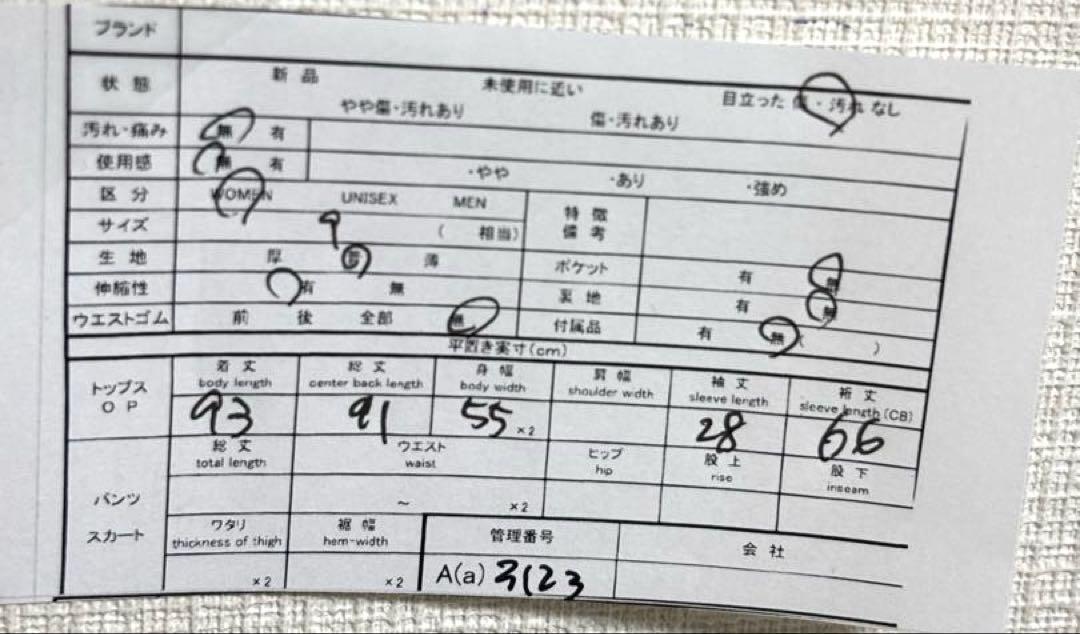 ブランド
状態 新品 未使用に近い 目立った傷・汚れなし
やや傷・汚れあり 傷・汚れあり
汚れ・痛み 無 有
使用感 無 有 ・やや ・あり ・強め
区分 WOMEN UNISEX MEN 特徴 備考
サイズ 9 ( 相当)
生地 厚 薄 ポケット 有 無
伸縮性 有 無 裏地 有 無
ウエストゴム 前 後 全部 無 付属品 有 無 ( )
平置き実寸(cm)
トップス OP 着丈 総丈 身幅 肩幅 袖丈 裄丈
body length center back length body width shoulder width sleeve length sleeve length (CB)
93 91 55 ×2 28 66
総丈 ウエスト ヒップ 股上 股下
total length waist hip rise inseam
パンツ ~ ×2
スカート ワタリ 裾幅 管理番号 会社
thickness of thigh hem-width
×2 ×2 A(a) 3123